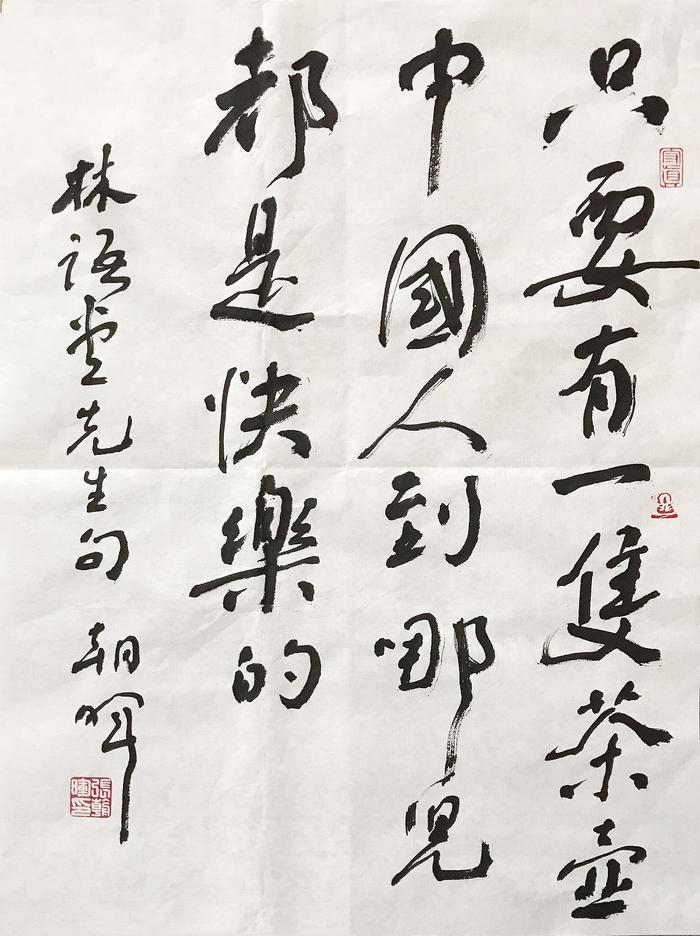 只要有一隻茶壺
中國人到哪兒
都是快樂的
林語堂先生句 朝暉